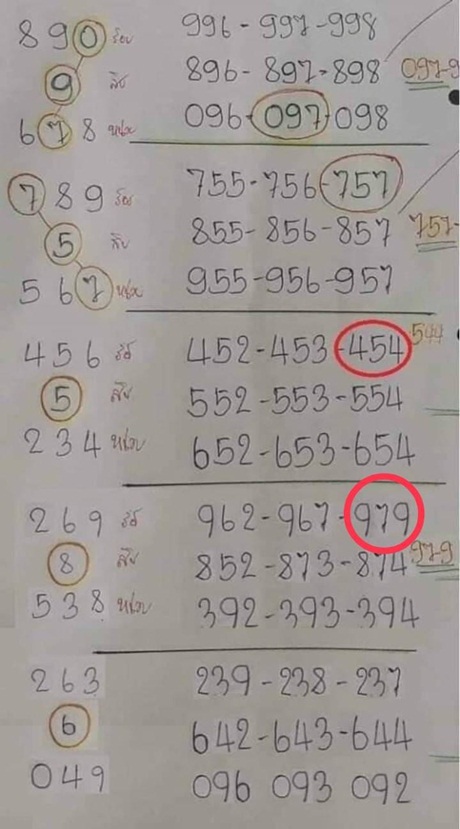 890 ร้อย 996-997-998
9 สิบ 896-897-898 097-9
678 หน่วย 096-097-098
789 ร้อย 755-756-757
5 สิบ 855-856-857 757-
567 หน่วย 955-956-957
456 ร้อย 452-453-454 544
5 สิบ 552-553-554
234 หน่วย 652-653-654
269 ร้อย 962-967-979
8 สิบ 852-873-874 979
538 หน่วย 392-393-394
263 239-238-237
6 642-643-644
049 096 093 092